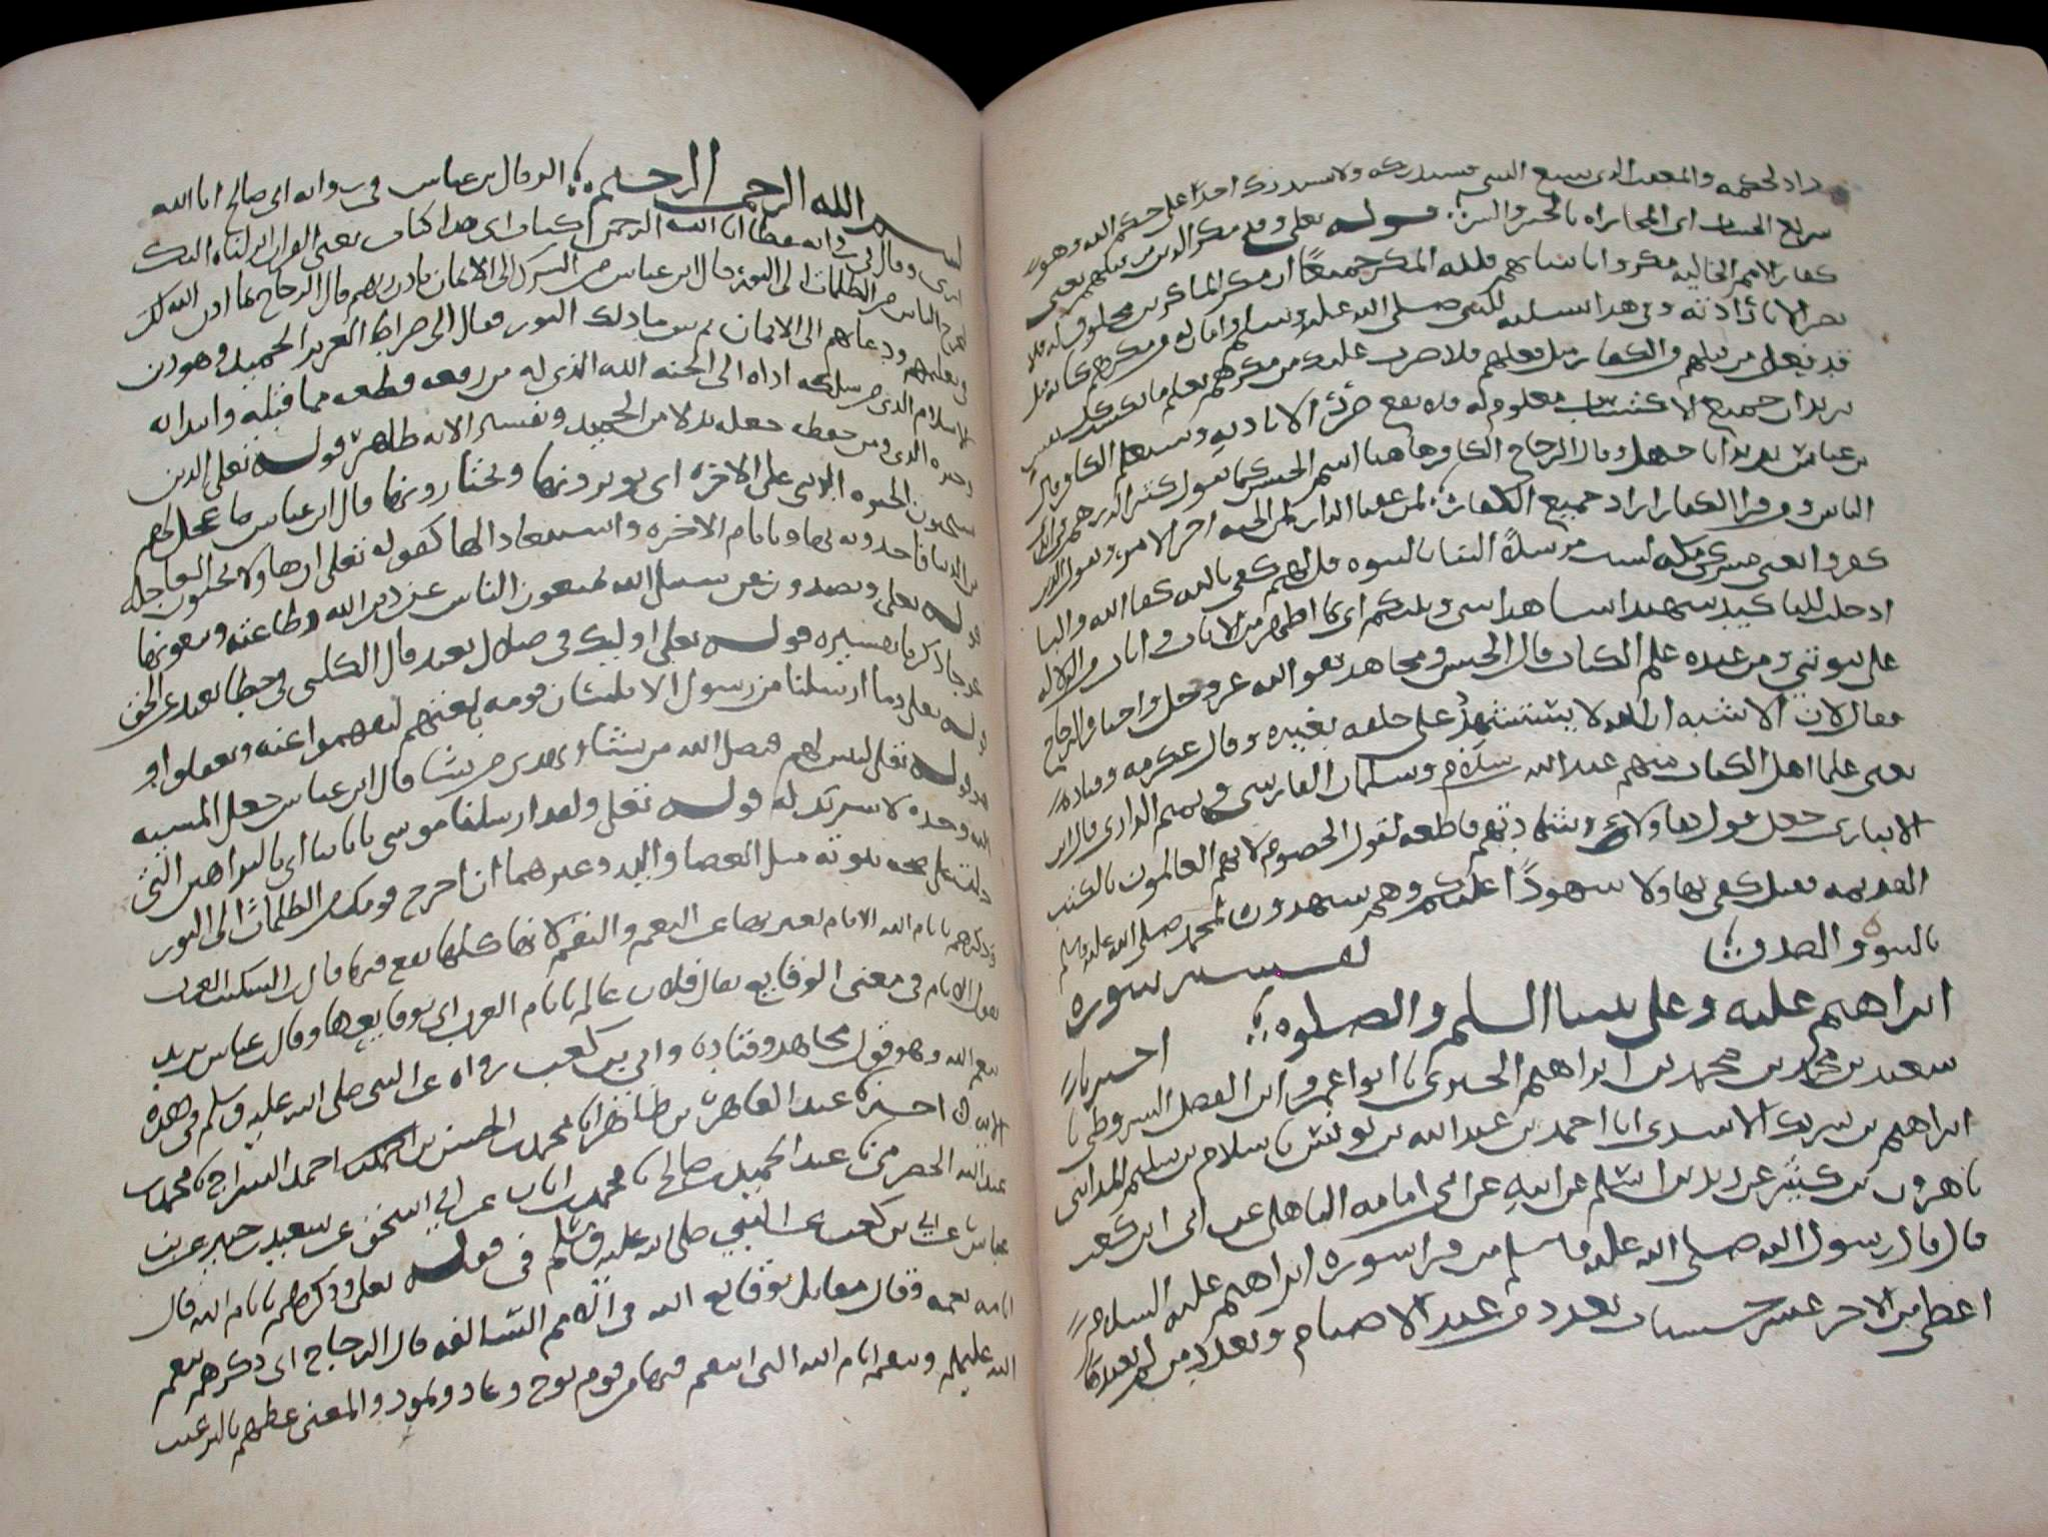 راد لحكمه والمعقب الذي يتبع الشي فيستدركه ولا يستدرك احد على حكم الله وهو
سريع الحساب اى المجازاه بالخير والشر قوله تعلى وقد مكر الذين من قبلهم يعنى
كفار الامم الخاليه مكروا بانبيائهم فلله المكر جميعا ان مكر الماكرين مخلوق له فلا
يضر الا باذنه وفى هذا تسليه للنبى صلى الله عليه وسلم وامان له من مكرهم كانه قيل
قد فعل من قبلهم والكفار مثل فعلهم فلا ضرر عليك من مكرهم يعلم ما تكسب كل نفس
يريد ان جميع الاكتساب معلوم له فلا يقع ضرر الا باذنه وسيعلم الكافر قال
بن عباس يريد ابا جهل وقال الزجاج الكافر هاهنا اسم الجنس كما تقول كثر الدرهم فى ايدى
الناس ومن قرا الكفار اراد جميع الكفار لمن عقبا الدار لمن الجنه اخر الامر ويقول الذين
كفروا يعنى مشركى مكه لست مرسلا الينا بالنبوه قل لهم كفى بالله كفا الله والبا
ادخلت للتاكيد شهيدا شاهدا بينى وبينكم اى بما اظهر من الايات وابان من الدلاله
على نبوتى ومن عنده علم الكتاب قال الحسن ومجاهد هو الله عز وجل واختار الزجاج
فقال لان الاشبه ان الله لا يستشهد على خلقه بغيره وقال عكرمه وقتاده
يعنى علما اهل الكتاب منهم عبد الله بن سلام وسلمان الفارسى وتميم الدارى قال ابن
الانبارى جعل قول هاولاء وشهادتهم قاطعه لقول الخصوم لانهم العالمون بالكتب
القديمه فقيل كفى بهاولا شهودا عليكم وهم يشهدون لمحمد صلى الله عليه وسلم
بالنبوه والصدق تفسير سوره
ابراهيم عليه وعلى نبينا السلم والصلوه اخبرنا
سعيد بن محمد بن محمد بن ابراهيم الحيرى نا ابو عمرو ابن الفضل الشروطى نا
ابراهيم بن شريك الاسدى انا احمد بن عبد الله بن يونس نا سلام بن سليم المداينى
نا هرون بن كثير عن زيد بن اسلم عن ابيه عن ابى امامه الباهلى عن ابى ابن كعب
قال قال رسول الله صلى الله عليه وسلم من قرا سوره ابراهيم عليه السلام
اعطى من الاجر عشر حسنات بعدد من عبد الاصنام وبعدد من لم يعبدها
بسم الله الرحمن الرحيم الر قال بن عباس فى روايه ابى صالح انا الله
ارى وقال فى روايه عطا انا الله الرحمن كتاب اى هذا كتاب يعنى القران انزلناه اليك
لتخرج الناس من الظلمات الى النور قال ابن عباس من الشرك الى الايمان باذن ربهم قال الزجاج بما اذن الله لك
فى تعليمهم ودعاهم الى الايمان ثم بين ما ذلك النور فقال الى صراط العزيز الحميد وهو دين
الاسلام الذى من سلكه اداه الى الجنه الله الذى له من رفعه قطعه مما قبله وابتدا به
وخبره الذى ومن خفض جعله بدلا من الحميد وتفسير الايه ظاهر قوله تعلى الذين
يستحبون الحيوه الدنيا على الاخره اى يوثرونها ويختارونها قال ابن عباس ما عجل لهم
من الدنيا فاخذوه تهاونا بامر الاخره واستبعادا لها كقوله تعلى ان هاولا يحبون العاجله
قوله تعلى ويصدون عن سبيل الله يمنعون الناس عن دين الله وطاعته ويبغونها
عوجا ذكرنا تفسيره قوله تعلى اوليك فى ضلال بعيد قال الكلبى فى خطا بعيد عن الحق
قوله تعلى وما ارسلنا من رسول الا بلسان قومه بلغتهم ليفهموا عنه ويعقلوا
قوله تعلى ليبين لهم فيضل الله من يشاء ويهدى من يشا قال ابن عباس جعل المشيه
لله وحده لا شريك له قوله تعلى ولقد ارسلنا موسى باياتنا اى بالبراهين التى
دلت على صحه نبوته مثل العصا واليد وغيرهما ان اخرج قومك من الظلمات الى النور
وذكرهم بايام الله الايام يعبر بها عن النعم والنقم لانها كلها تقع فيها قال بن السكيت العرب
تقول الايام فى معنى الوقايع يقال فلان عالم بايام العرب اى بوقايعها وقال عباس يريد
بنعم الله وهو قول مجاهد وقتاده وابى بن كعب رواه عن النبى صلى الله عليه وسلم فى هذه
الايه اخبرناه عبد القاهر بن طاهر انا محمد بن الحسن بن احمد السراج نا محمد بن
عبد الله الحضرمى نا عبد الحميد بن صالح نا محمد بن ابان عن ابى اسحق عن سعيد بن جبير عن بن
عباس عن ابى بن كعب عن النبى صلى الله عليه وسلم فى قوله تعلى وذكرهم بايام الله قال
ايامه نعمه وقال مقاتل بوقايع الله فى الامم السالفه قال الزجاج اى ذكرهم بنعم
الله عليهم وبنقم ايام الله التى انتقم فيها من قوم نوح وعاد وثمود والمعنى عظهم بالترغيب